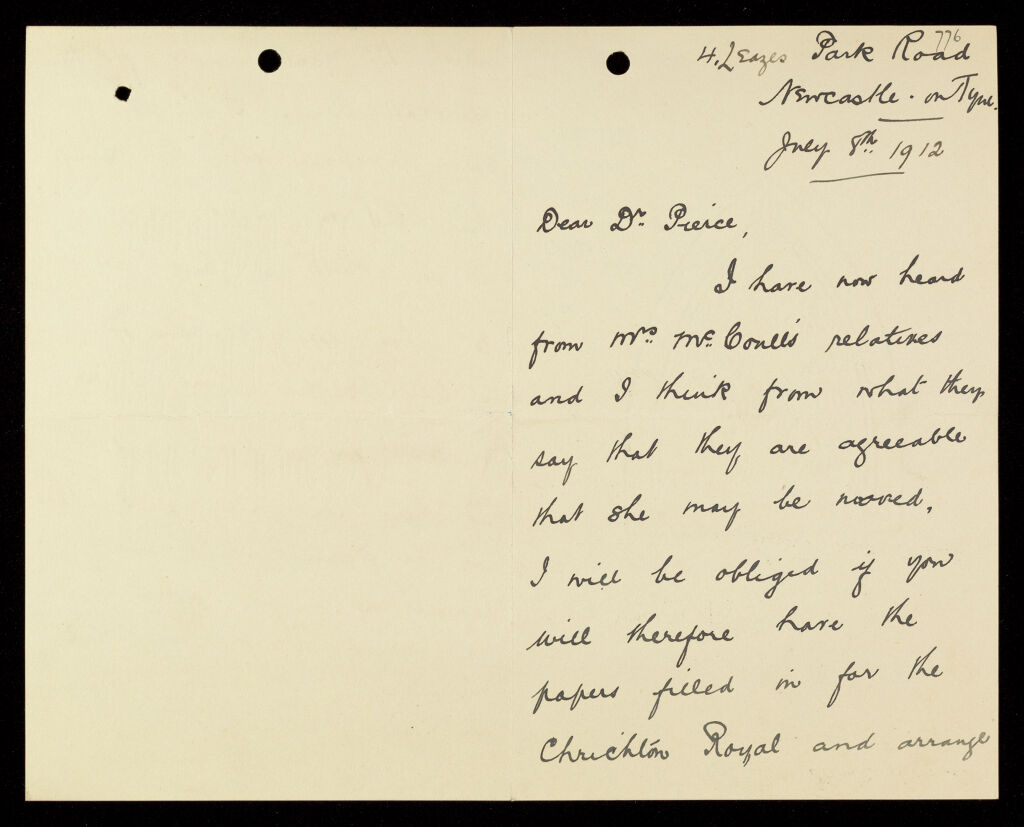 776
4. Leazes Park Road
Newcastle-on Tyne.
July 8th 1912
Dear Dr. Pierce,
I have now heard
from Mrs. Mc. Conell's relatives
and I think from what they
say that they are agreeable
that she may be moved.
I will be obliged if you
will therefore have the
papers filled in for the
Chrichton Royal and arrange